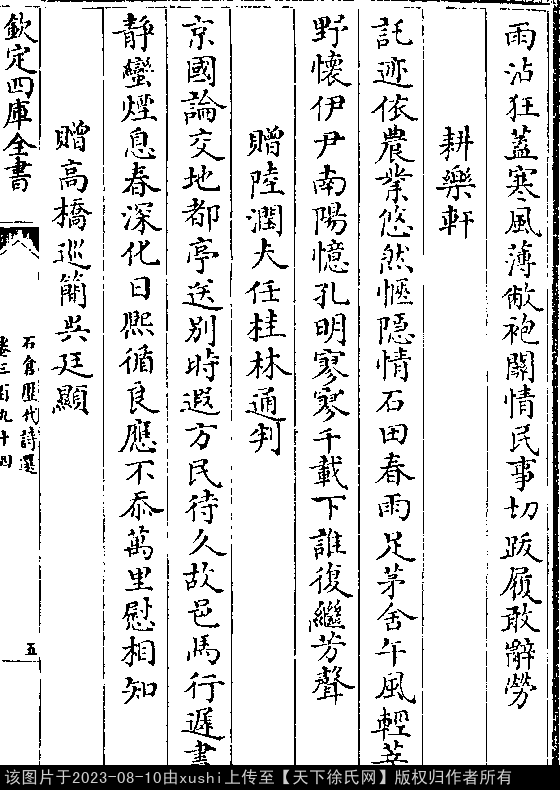 雨沾狂蓋寒風薄敝袍關情民事切跋履敢辭勞
耕樂軒
託迹依農業悠然愜隠情石田春雨足茅舍午風輕莘
野懷伊尹南陽憶孔明寥寥千載下誰復繼芳聲
贈陸潤夫任桂林通判
京國論交地都亭送别時遐方民待久故邑馬行遲晝
静蠻煙息春深化日熙循良應不忝萬里慰相知
贈髙橋巡簡吳廷顯
欽定四庫全書
石倉歴代詩選
卷三百九十四
五
该图片于2023-08-10由xushi上传至【天下徐氏网】版权归作者所有